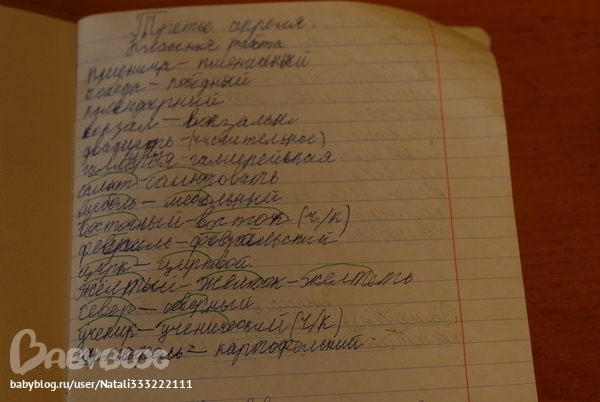 Третье апреля.
Классная работа
пшеница – пшеничный
победа – победный
календарный
вокзал – вокзальн
двадцать – (числительное)
галерея – галлерейная
салют – салютовать
мебель – мебельный
восточный – восток (ч/к)
февраль – февральский
цирк – цирковой
жёлтый – желток – желтеть
север – северный
ученик – ученический (ч/к)
картофель – картофельный
BABYBLOG
babyblog.ru/user/Natali333222111